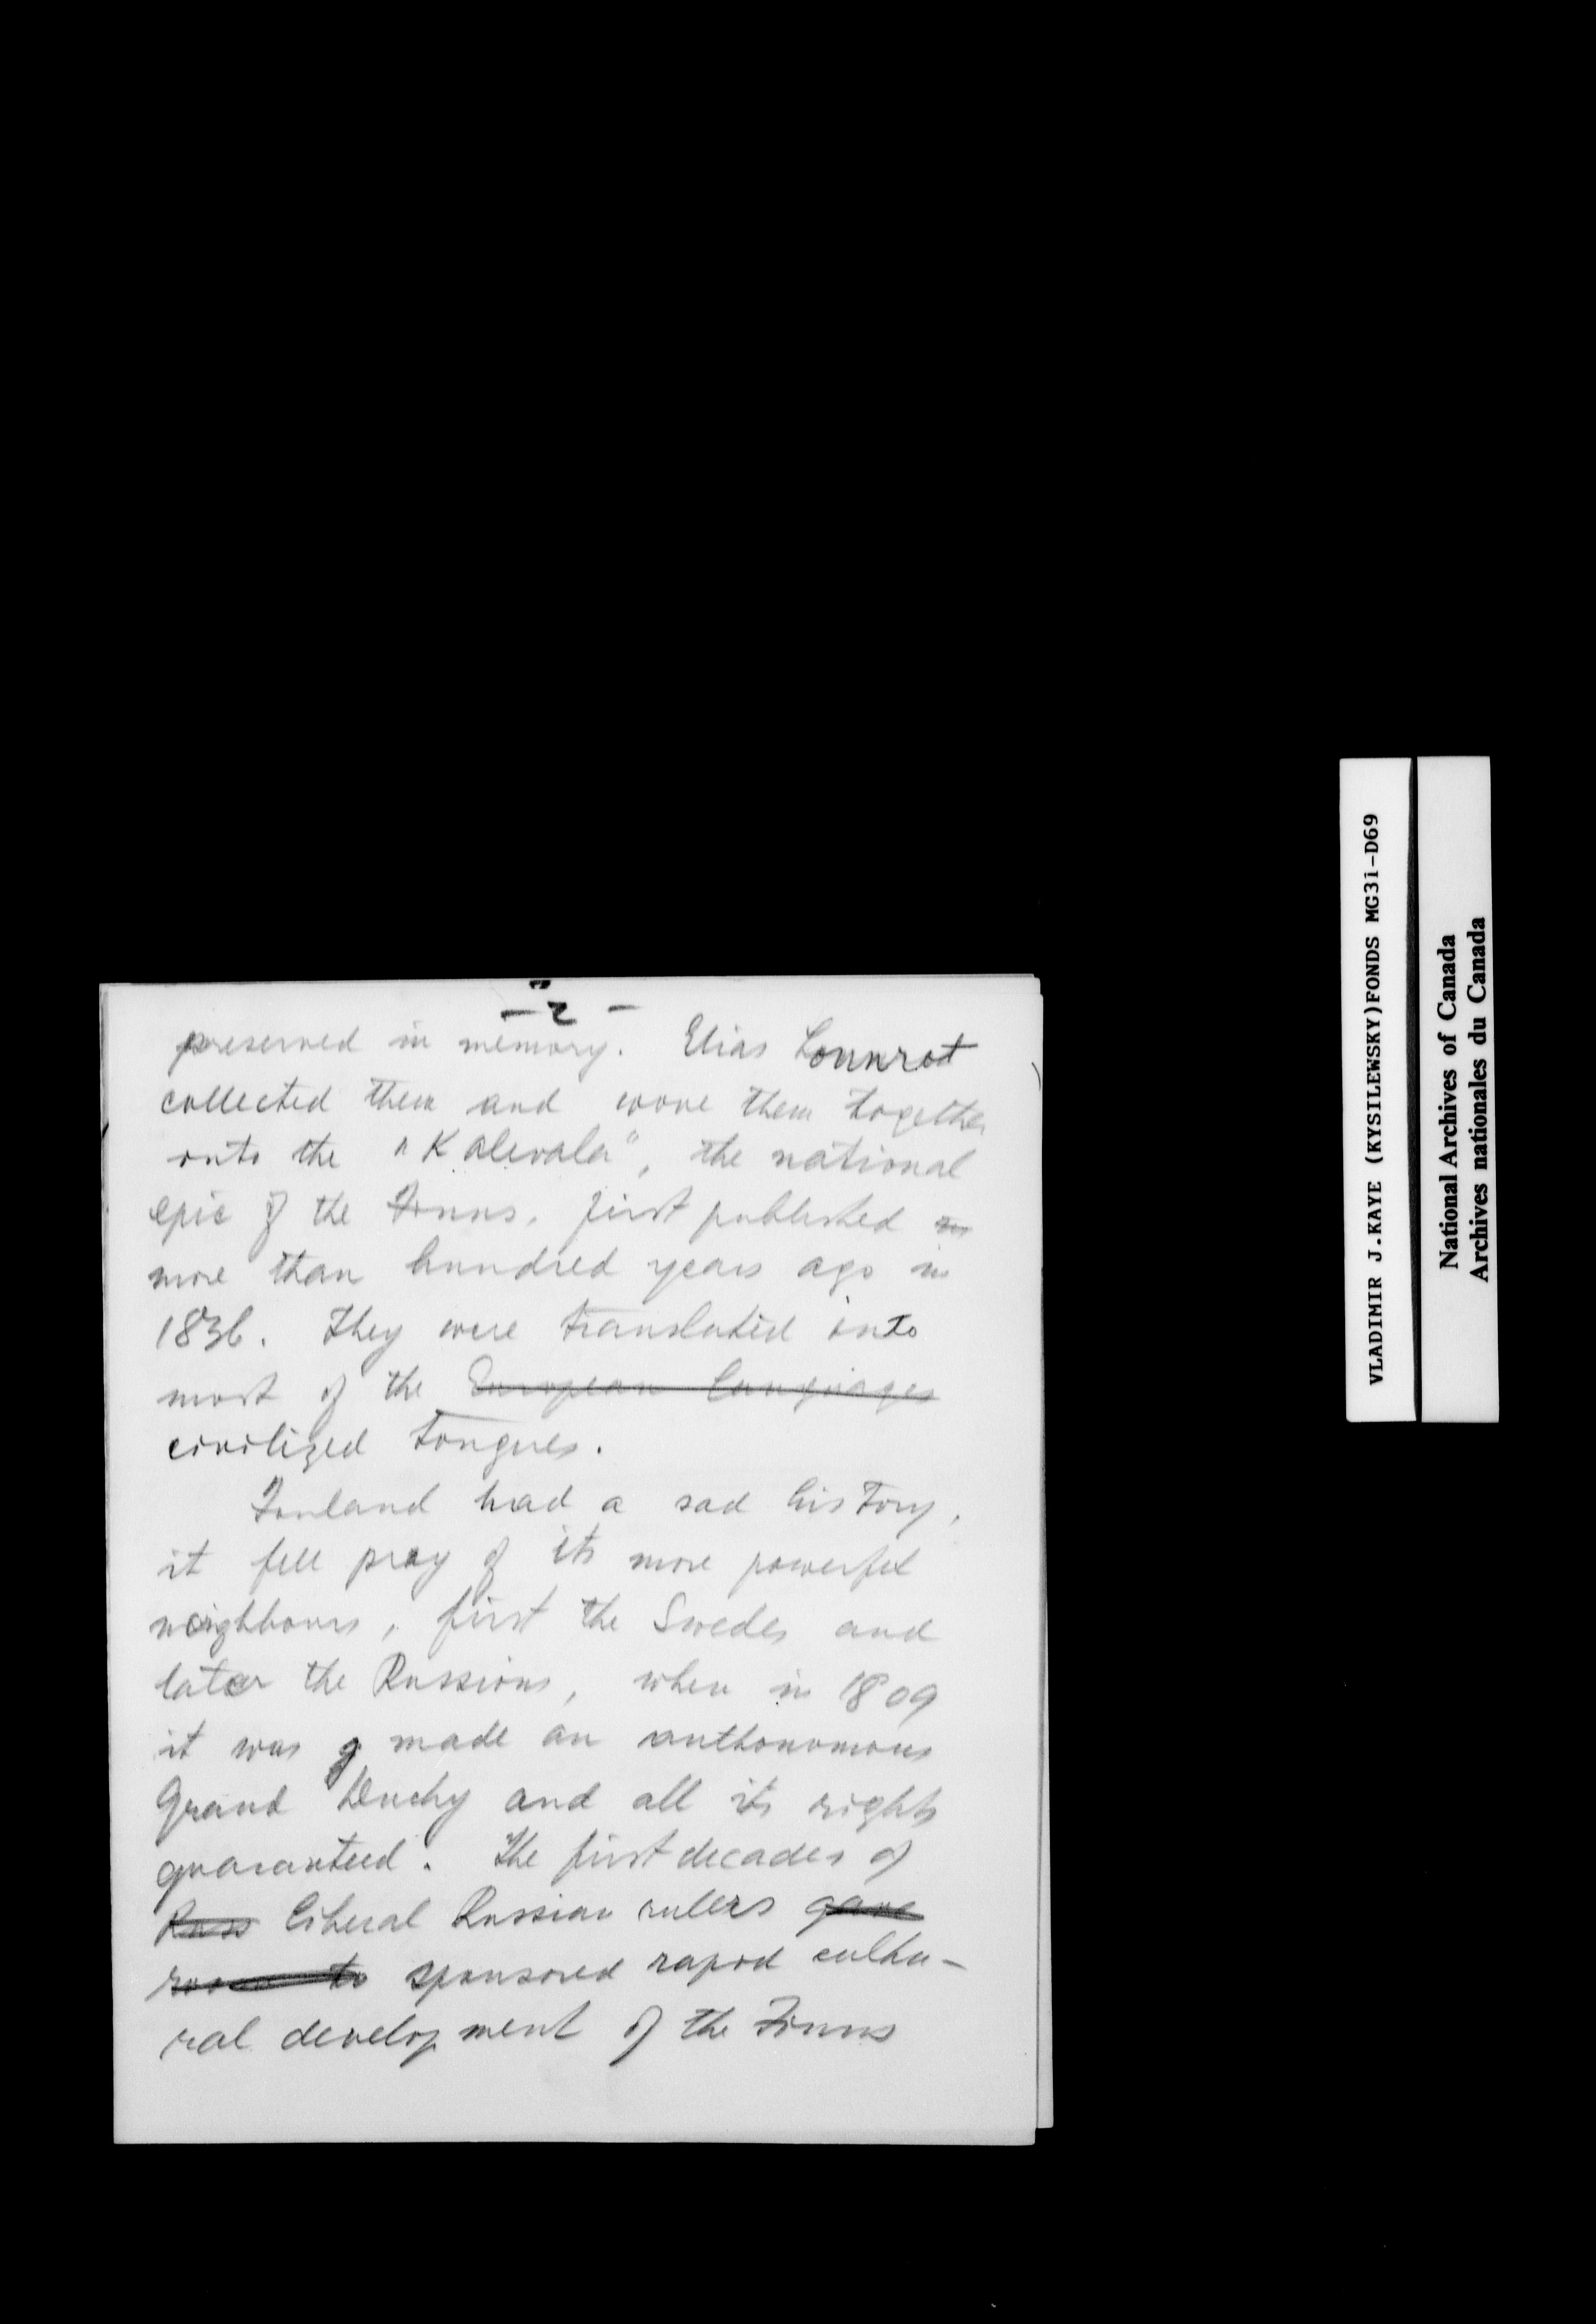 - 2 -
preserved in memory. Elias Lonnrot
collected them and wove them together
into the "Kalevala", the national
epic of the Finns, first published in
more than hundred years ago in
1836. They were translated into
most of the European languages
civilized tongues.
Finland had a sad history,
it fell pray of its more powerful
neighbours, first the Swedes and
later the Russians, when in 1809
it was g made an authonomous
Grand Duchy and all its rights
guaranteed. The first decades of
Russ liberal Russian rulers gave
room to sponsored rapid cultu-
ral development of the Finns
VLADIMIR J.KAYE (KYSILEWSKY)FONDS MG31-D69
National Archives of Canada
Archives nationales du Canada